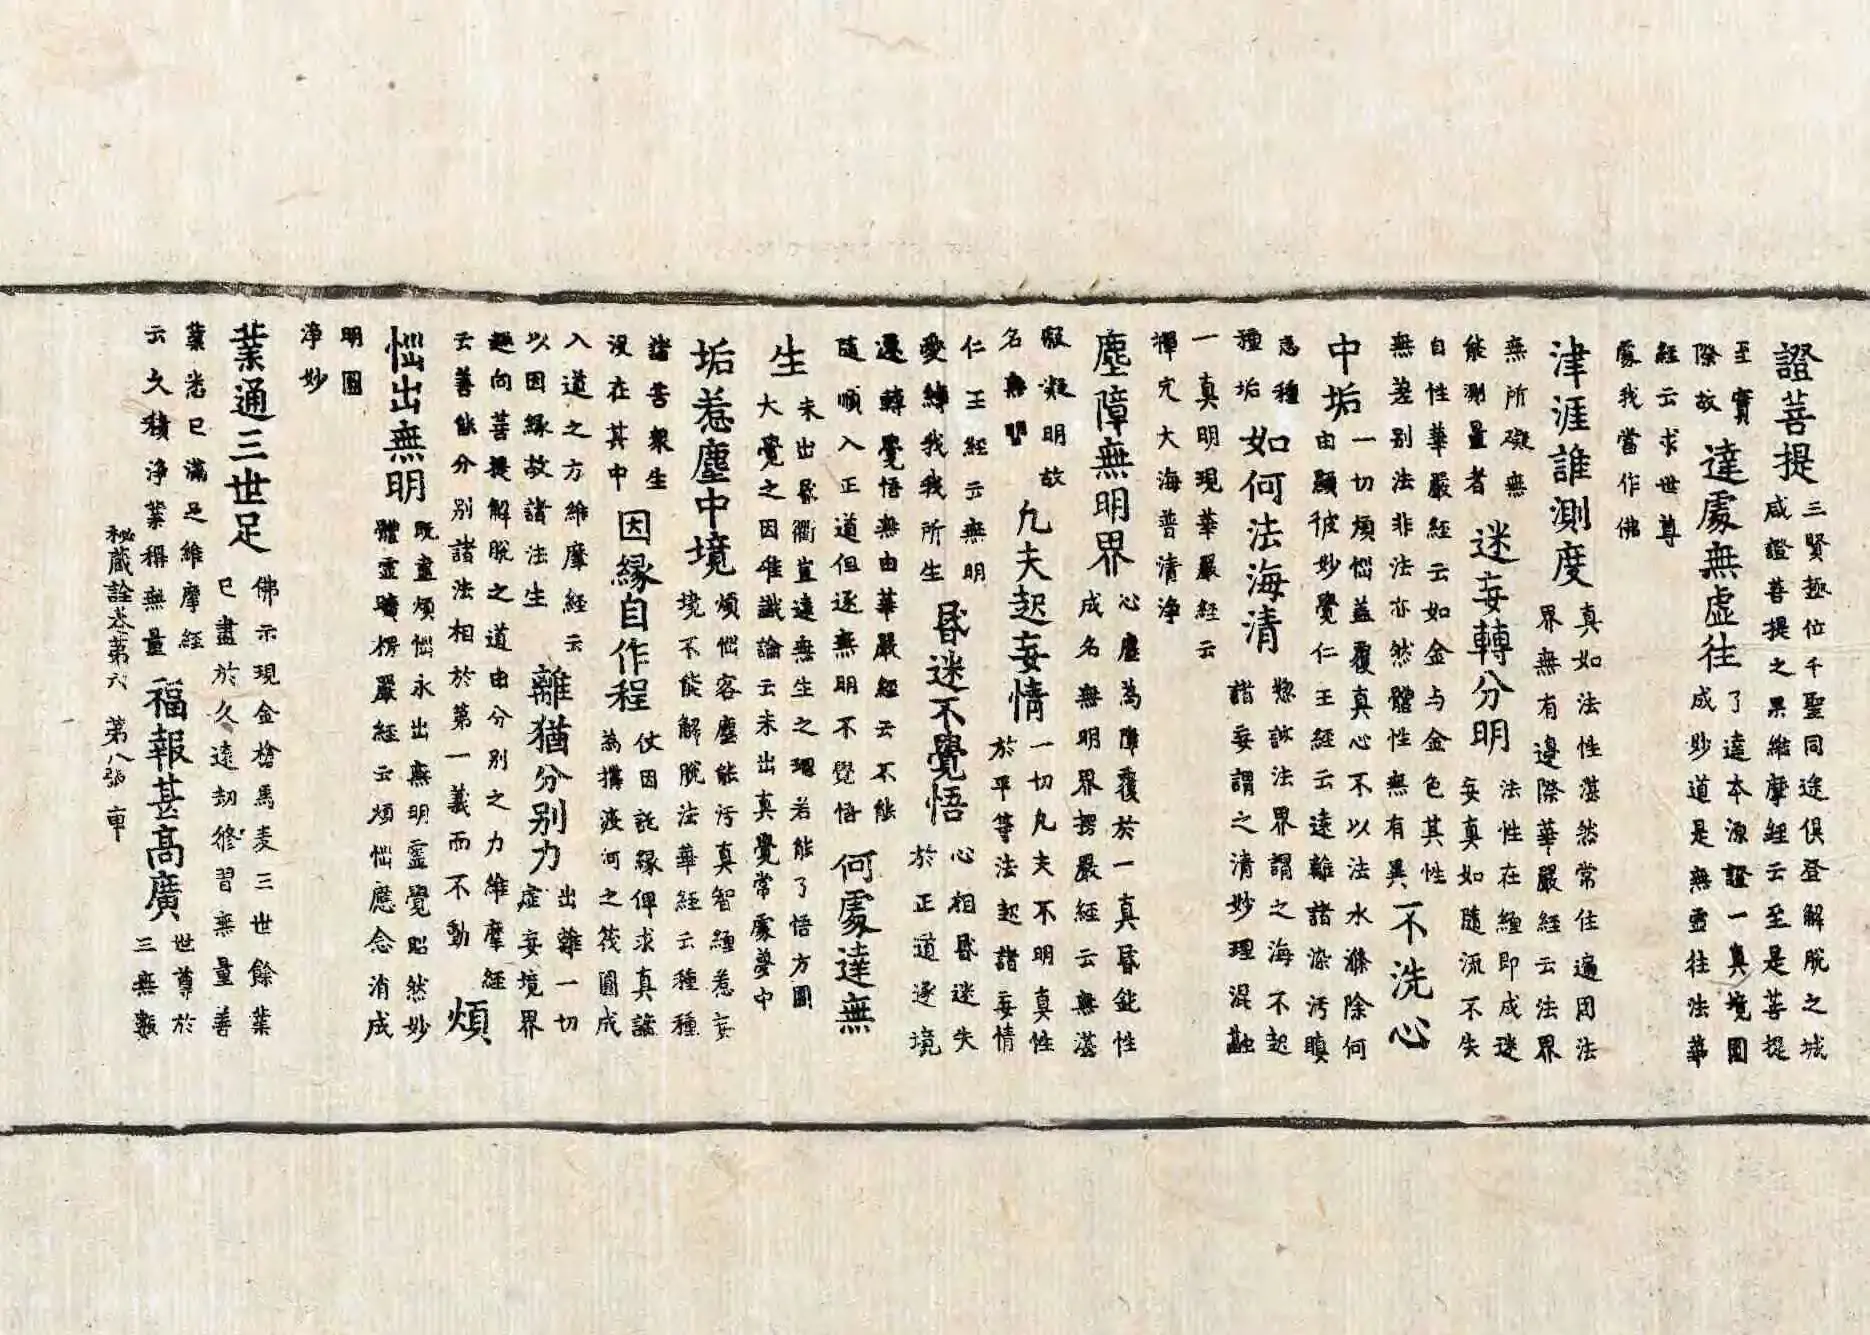 證菩提
三賢趣位千聖同途俱登解脫之城
咸證菩提之果維摩經云至是菩提
至實
際故
達處無虛往
了達本源證一真境圓
成妙道是無虛往法華
經云求世尊
處我當作佛
津涯誰測度
真如法性湛然常住遍因法
界無有邊際華嚴經云法界
無所礙無
能測量者
迷妄轉分明
法性在纏即成迷
妄真如隨流不失
自性華嚴經云如金与金色其性
無差別法非法亦然體性無有異
不洗心
中垢
一切煩惱蓋覆真心不以法水滌除何
由顯彼妙覺仁王經云遠離諸染汚瞋
恚種
種垢
如何法海清
法界謂之海不起
諸妄謂之清妙理混融
一真明現華嚴經云
禪定大海普清淨
塵障無明界
心塵為障覆於一真昏鈍性
成名無明界楞嚴經云無湛
癡明故
名無明
凡夫起妄情
一切凡夫不明真性
於平等法起諸妄情
仁王經云無明
愛縛我我所生
昏迷不覺悟
心相昏迷失
於正道逐境
遷轉覺悟無由華嚴經云不能
隨順入正道但逐無明不覺悟
何處達無
生
未出昏衢豈遠無生之理若能了悟方圓
大覺之因唯識論云未出真覺常處夢中
垢惹塵中境
煩惱客塵能汚真智纏惹妄
境不能解脫法華經云種種
諸苦衆生
沒在其中
因緣自作程
仗因託緣俾求真諦
為渡河之筏圓成
入道之方維摩經云
以因緣故諸法生
離猶分別力
出離一切
虛妄境界
趣向菩提解脫之道由分別之力維摩經
云善能分別諸法相於第一義而不動
煩
惱出無明
既盡煩惱永出無明靈覺昭然妙
體靈楞嚴經云煩惱應念消成
明圓
淨妙
業通三世足
佛示現金槍馬麦三世餘業
已盡於久遠劫修習無量善
業悉已滿足維摩經
云久積淨業稱無量
福報甚高廣
世尊於
三無數
秘藏詮卷第六 第八張 車